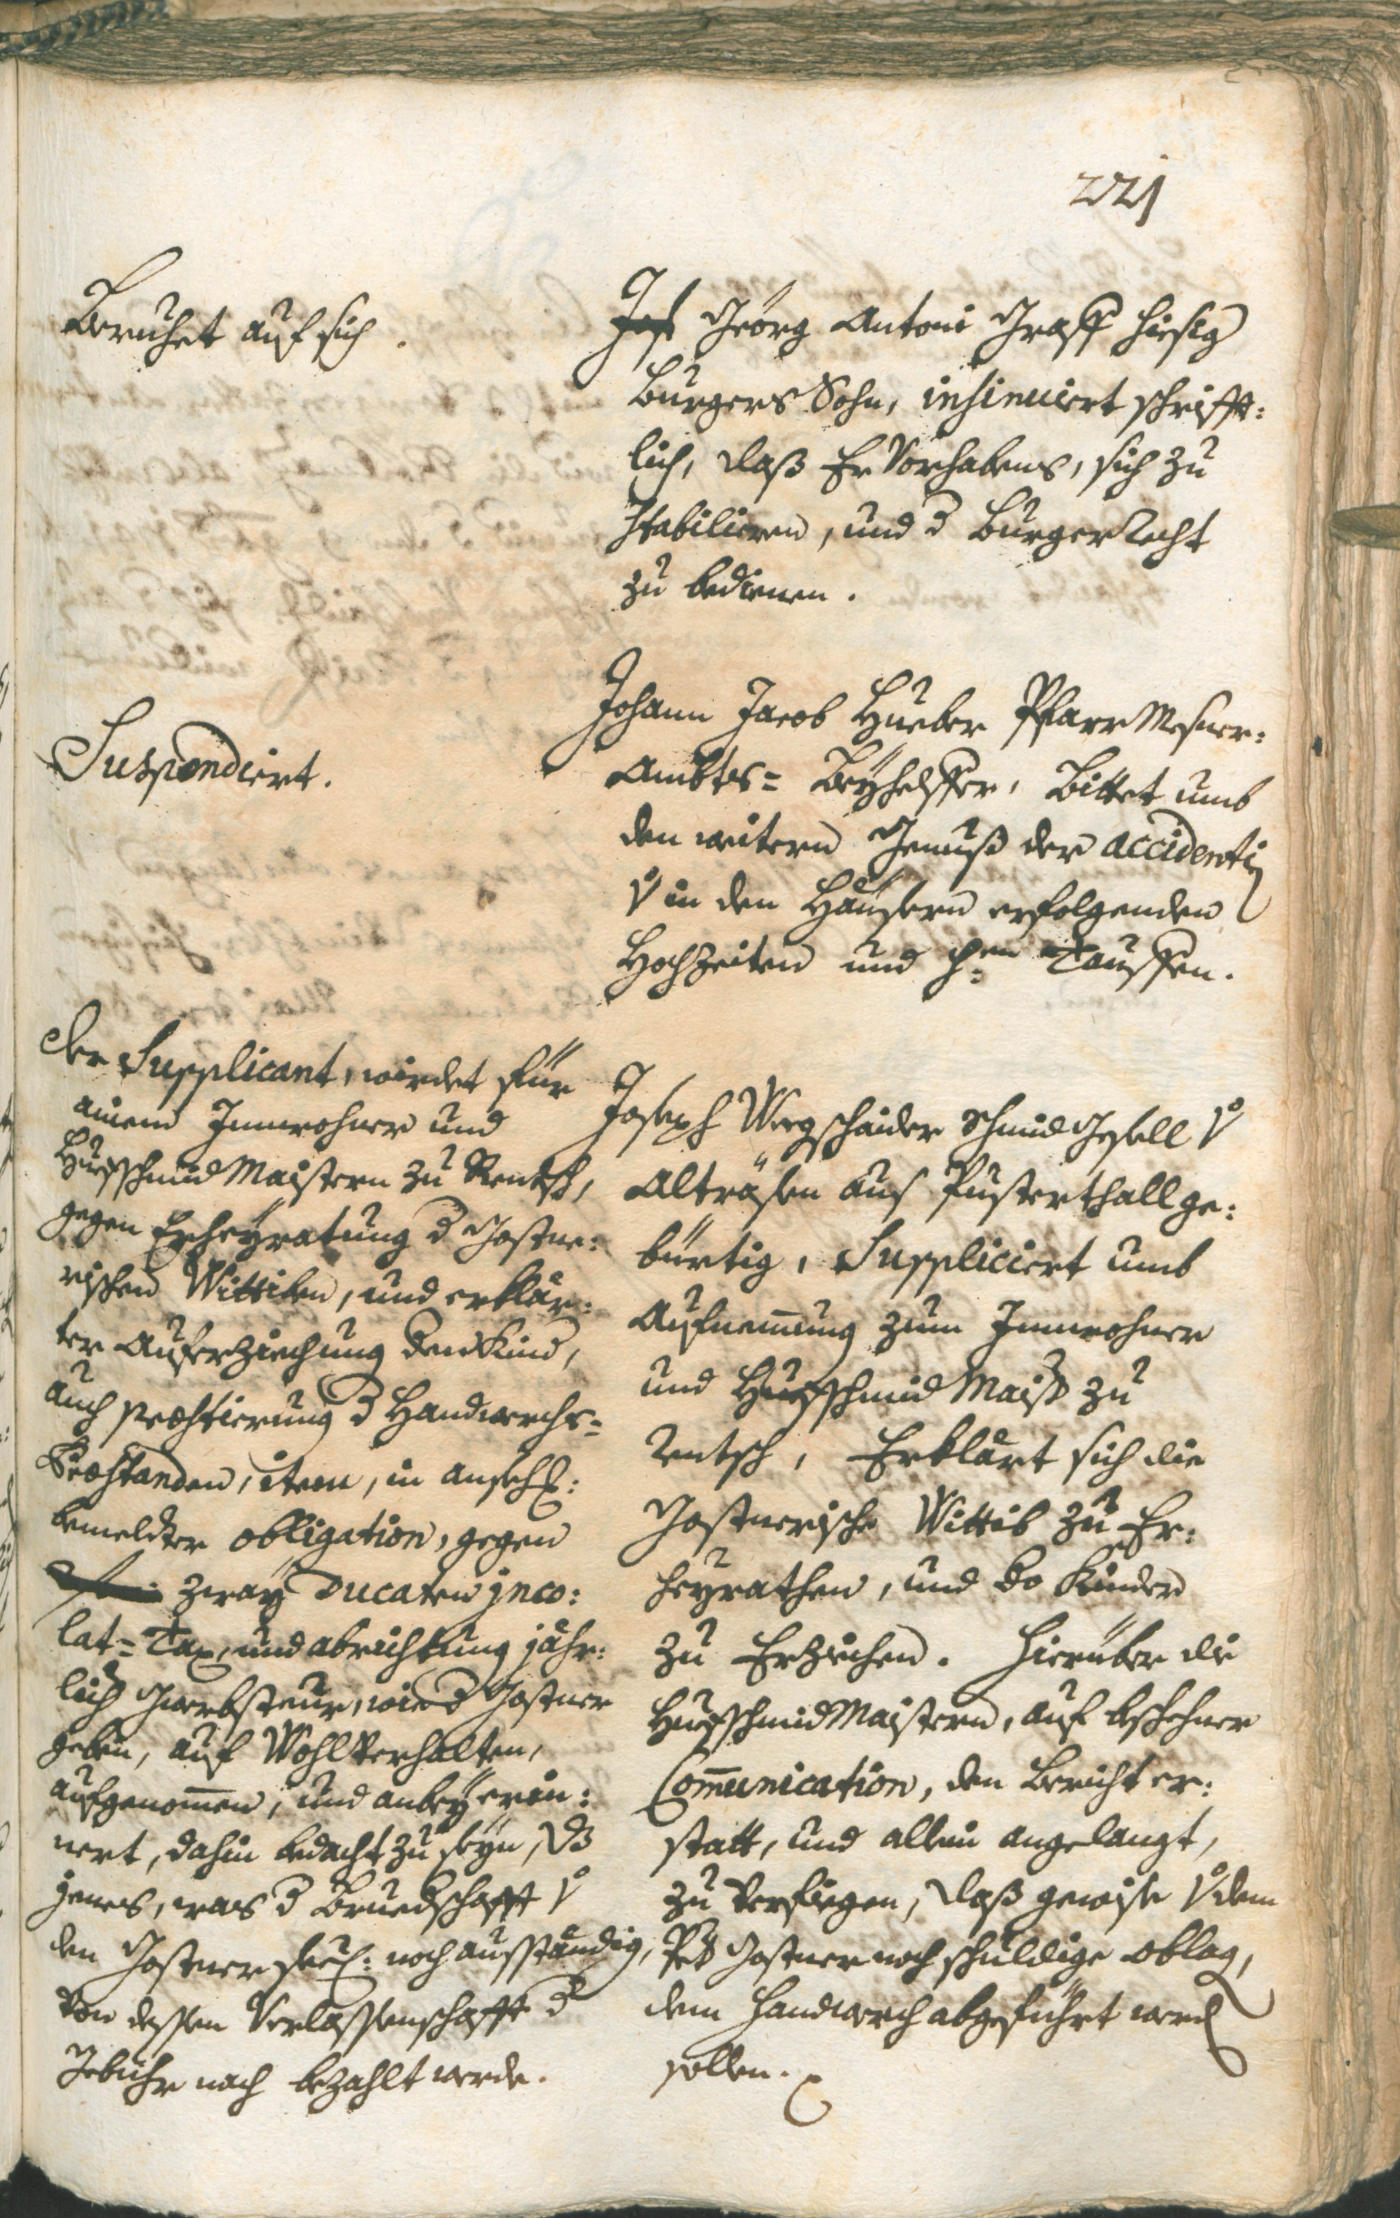 221
Beruhet auf sich.
Georg Antoni Graff hiesig
Burgers Sohn, insinuiert schrifft:
lich, daß Er Vorhabens, sich zu
stabilieren, und d Burger Recht
zu bedienen.
Suspendiert.
Johann Jacob Hueber Pfarr Mesner:
Ambts= Beyhelffer, Bittet umb
den weitern Genuß der accidenti
in den Häusern erfolgenden
Hochzeiten und Tauffen.
Der Supplicant, wirdet für
ainem Innwohner und
Huefschmid Maistern zu Rentsch,
gegen Erheyratung d Gostne:
rischen Wittiben, und erklär:
ter Auferziechung den Kind,
auch præstierung d Handwerchs=
Præstanden, item, in ansech:
bemelter obligation, gegen
zway Ducaten jnco:
lat= Tax, und abrichtung jähr:
lich Gwerbsteur, wie d Gostner
geben, auf Wohlverhalten,
aufgenomen, und anbey erin:
nert, dahin bedacht zu seyn, dz
jenes, was d Bruedschafft V
den Gostner seel: noch ausständig,
von dessen Verlassenschafft d
Gebühr nach bezahlt werde.
Joseph Wegschaider Schmid Gesell V
Altrasen aus Pusterthall ge:
bürtig, Suppliciert umb
Aufnemung zum Innwohner
und Huefschmid Maist zu
Rentsch, Erklärt sich die
Gostnerische Wittib zu Er:
heyrathen, und do Kinder
zu Erziechen. Hierüber die
Huefschmid Maistern, auf beschehner
Communication, den Bericht er:
statt, und allein angelangt,
zu verfiegen, daß gewise V dem
Gostner noch schuldige oblag,
dem Handwerch abgeführt werd
sollen.